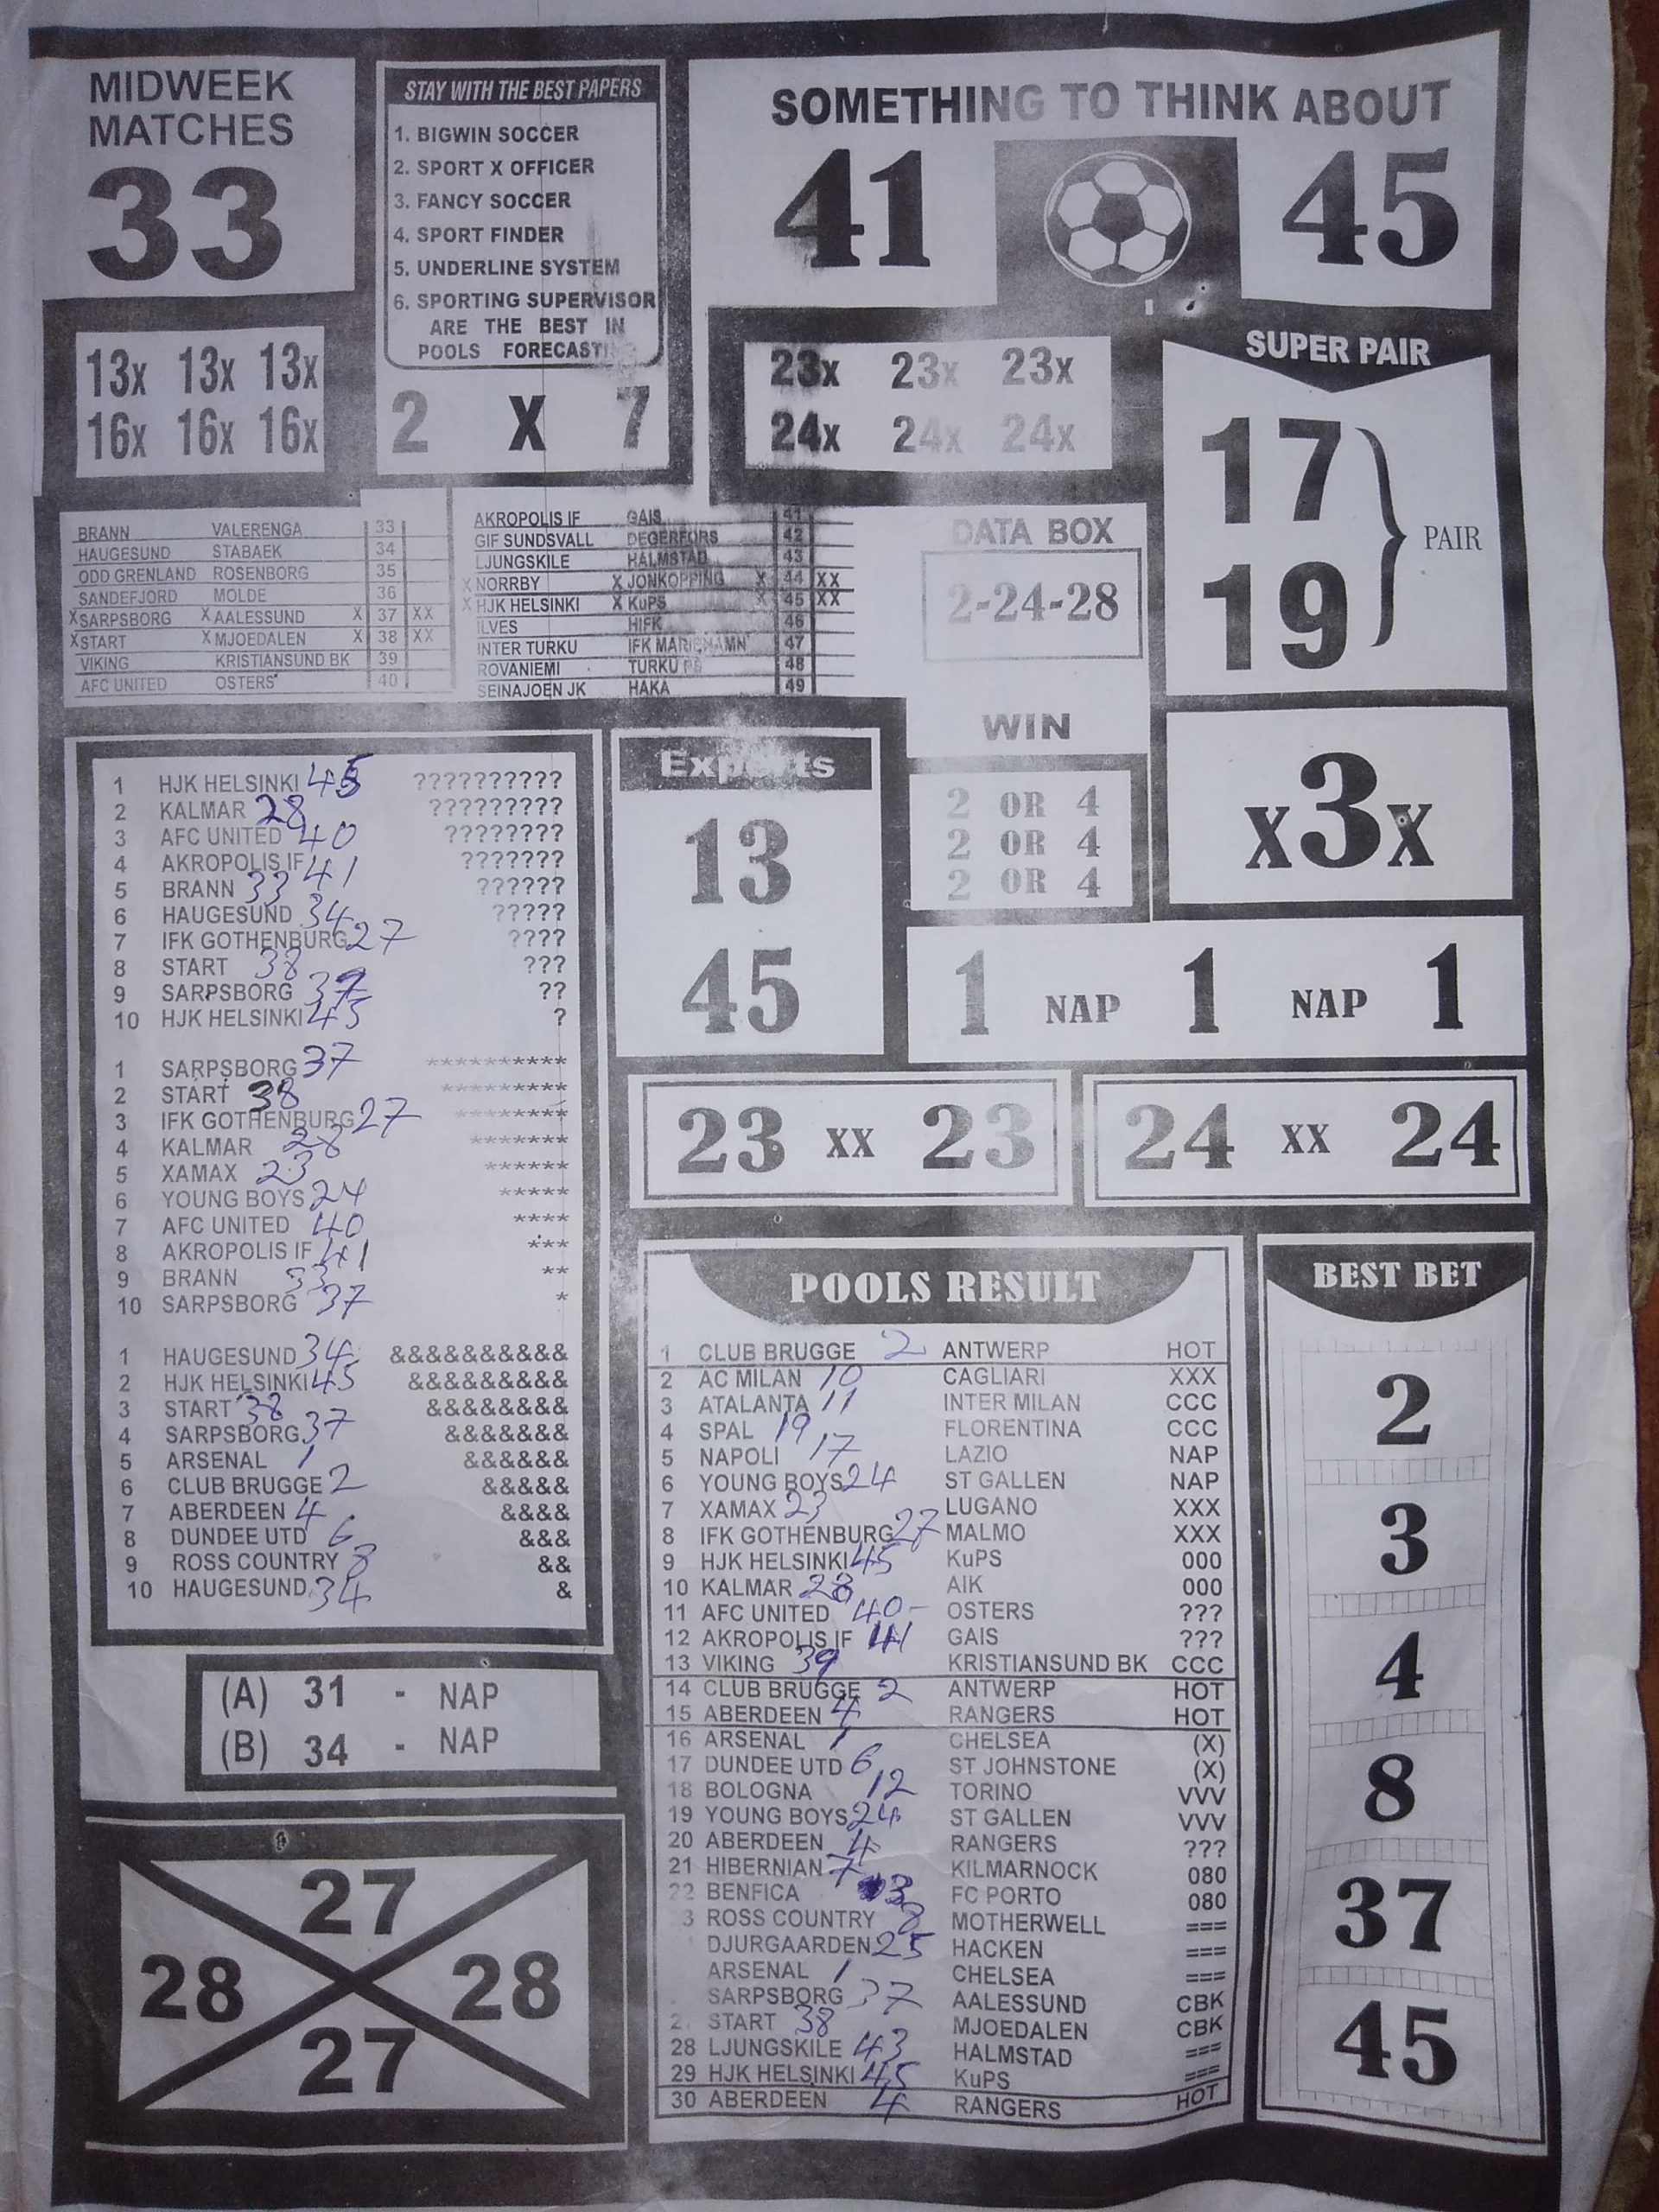 MIDWEEK
MATCHES
33
STAY WITH THE BEST PAPERS
1. BIGWIN SOCCER
2. SPORT X OFFICER
3. FANCY SOCCER
4. SPORT FINDER
5. UNDERLINE SYSTEM
6. SPORTING SUPERVISOR
ARE THE BEST IN
POOLS FORECASTING
SOMETHING TO THINK ABOUT
41 45
13x 13x 13x
16x 16x 16x
2 X 7
23x 23x 23x
24x 24x 24x
SUPER PAIR
17
19
PAIR
BRANN VALERENGA 33
HAUGESUND STABAEK 34
ODD GRENLAND ROSENBORG 35
SANDEFJORD MOLDE 36
X SARPSBORG X AALESSUND X 37 XX
X START X MJOEDALEN X 38 XX
VIKING KRISTIANSUND BK 39
AFC UNITED OSTERS 40
AKROPOLIS IF GAIS 41
GIF SUNDSVALL DEGERFORS 42
LJUNGSKILE HALMSTAD 43
X NORRBY X JONKOPPING X 44 XX
X HJK HELSINKI X KuPS X 45 XX
ILVES HIFK 46
INTER TURKU IFK MARIEHAMN 47
ROVANIEMI TURKU PS 48
SEINAJOEN JK HAKA 49
DATA BOX
2-24-28
WIN
2 OR 4
2 OR 4
2 OR 4
x3x
1 HJK HELSINKI 45 ??????????
2 KALMAR 28 ?????????
3 AFC UNITED 40 ????????
4 AKROPOLIS IF 41 ???????
5 BRANN 33 ??????
6 HAUGESUND 34 ?????
7 IFK GOTHENBURG 27 ????
8 START 38 ???
9 SARPSBORG 37 ??
10 HJK HELSINKI 45 ?
1 SARPSBORG 37 **********
2 START 38 *********
3 IFK GOTHENBURG 27 ********
4 KALMAR 28 *******
5 XAMAX 23 ******
6 YOUNG BOYS 24 *****
7 AFC UNITED 40 ****
8 AKROPOLIS IF 41 ***
9 BRANN 33 **
10 SARPSBORG 37 *
1 HAUGESUND 34 &&&&&&&&&&
2 HJK HELSINKI 45 &&&&&&&&&
3 START 38 &&&&&&&&
4 SARPSBORG 37 &&&&&&&
5 ARSENAL 1 &&&&&&
6 CLUB BRUGGE 2 &&&&&
7 ABERDEEN 4 &&&&
8 DUNDEE UTD 6 &&&
9 ROSS COUNTRY 8 &&
10 HAUGESUND 34 &
Experts
13
45
1 NAP 1 NAP 1
23 XX 23
24 XX 24
(A) 31 - NAP
(B) 34 - NAP
27
28 28
27
POOLS RESULT
1 CLUB BRUGGE 2 ANTWERP HOT
2 AC MILAN 10 CAGLIARI XXX
3 ATALANTA 11 INTER MILAN CCC
4 SPAL 19 FLORENTINA CCC
5 NAPOLI 17 LAZIO NAP
6 YOUNG BOYS 24 ST GALLEN NAP
7 XAMAX 23 LUGANO XXX
8 IFK GOTHENBURG 27 MALMO XXX
9 HJK HELSINKI 45 KuPS 000
10 KALMAR 28 AIK 000
11 AFC UNITED 40- OSTERS ???
12 AKROPOLIS IF 41 GAIS ???
13 VIKING 39 KRISTIANSUND BK CCC
14 CLUB BRUGGE 2 ANTWERP HOT
15 ABERDEEN 4 RANGERS HOT
16 ARSENAL 1 CHELSEA (X)
17 DUNDEE UTD 6 ST JOHNSTONE (X)
18 BOLOGNA 12 TORINO VVV
19 YOUNG BOYS 24 ST GALLEN VVV
20 ABERDEEN 4 RANGERS ???
21 HIBERNIAN 7 KILMARNOCK 080
22 BENFICA 3 FC PORTO 080
3 ROSS COUNTRY 8 MOTHERWELL ===
DJURGAARDEN 25 HACKEN ===
ARSENAL 1 CHELSEA ===
SARPSBORG 37 AALESSUND CBK
2 START 38 MJOEDALEN CBK
28 LJUNGSKILE 43 HALMSTAD ===
29 HJK HELSINKI 45 KuPS ===
30 ABERDEEN 4 RANGERS HOT
BEST BET
2
3
4
8
37
45